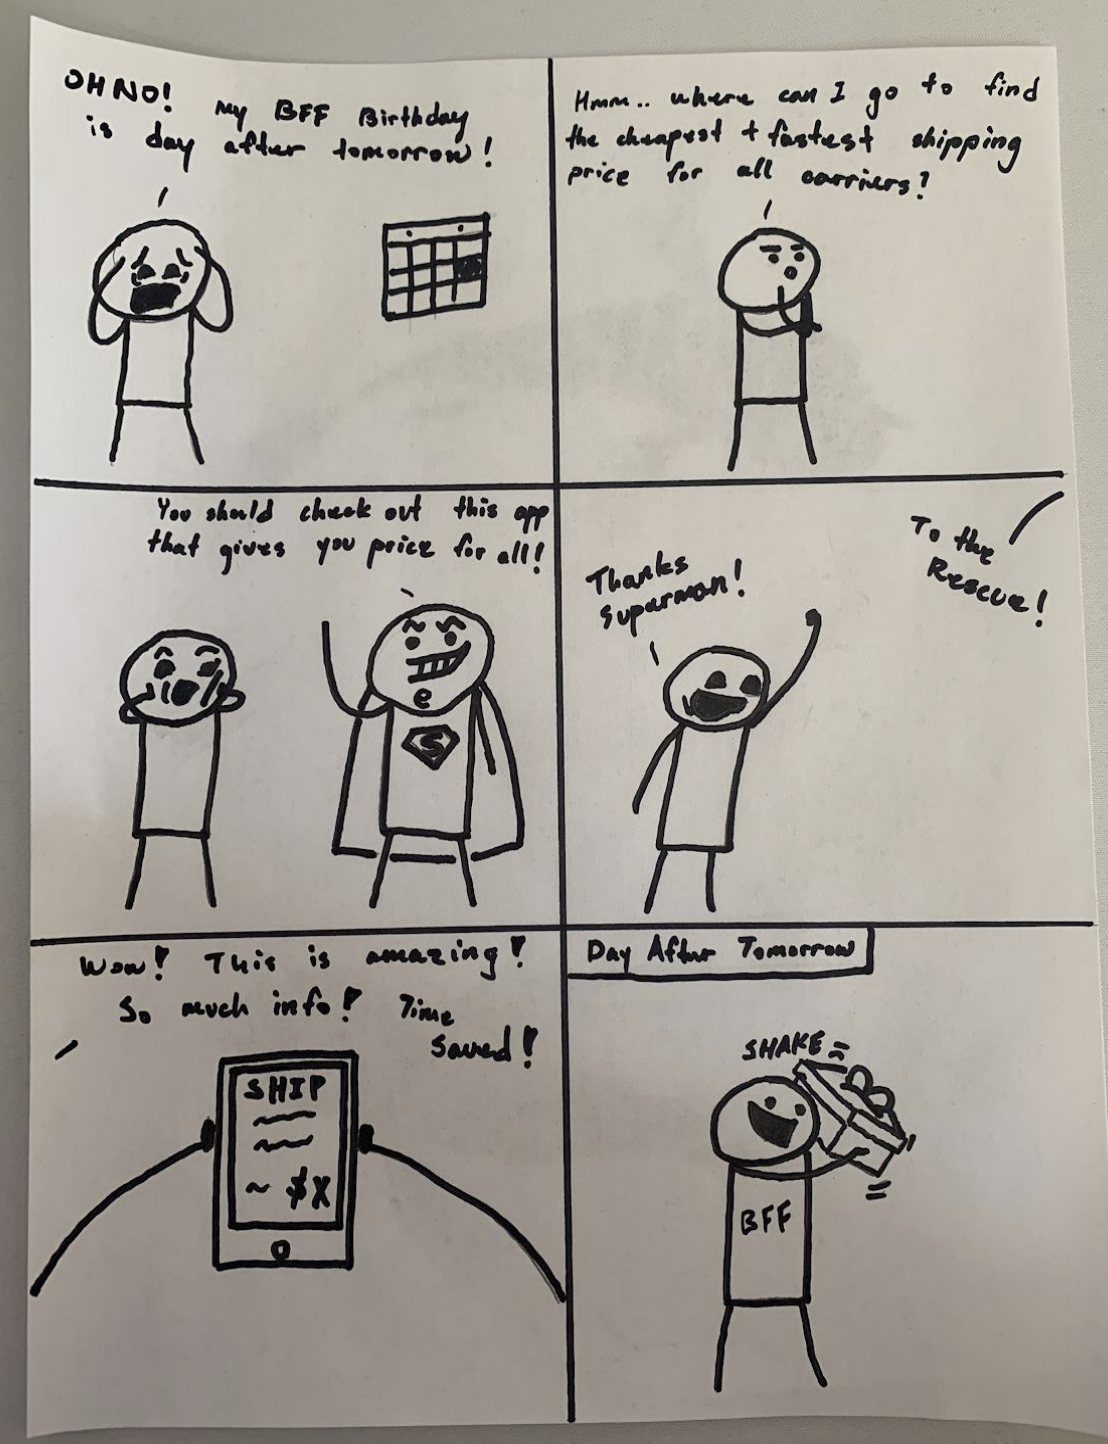 OH NO! My BFF Birthday
is day after tomorrow!
Hmm.. where can I go to find
the cheapest + fastest shipping
price for all carriers?
You should check out this app
that gives you price for all!
S
Thanks
Superman!
To the
Rescue!
Wow! This is amazing!
So much info! Time
Saved!
SHIP
~ $X
Day After Tomorrow
SHAKE
BFF